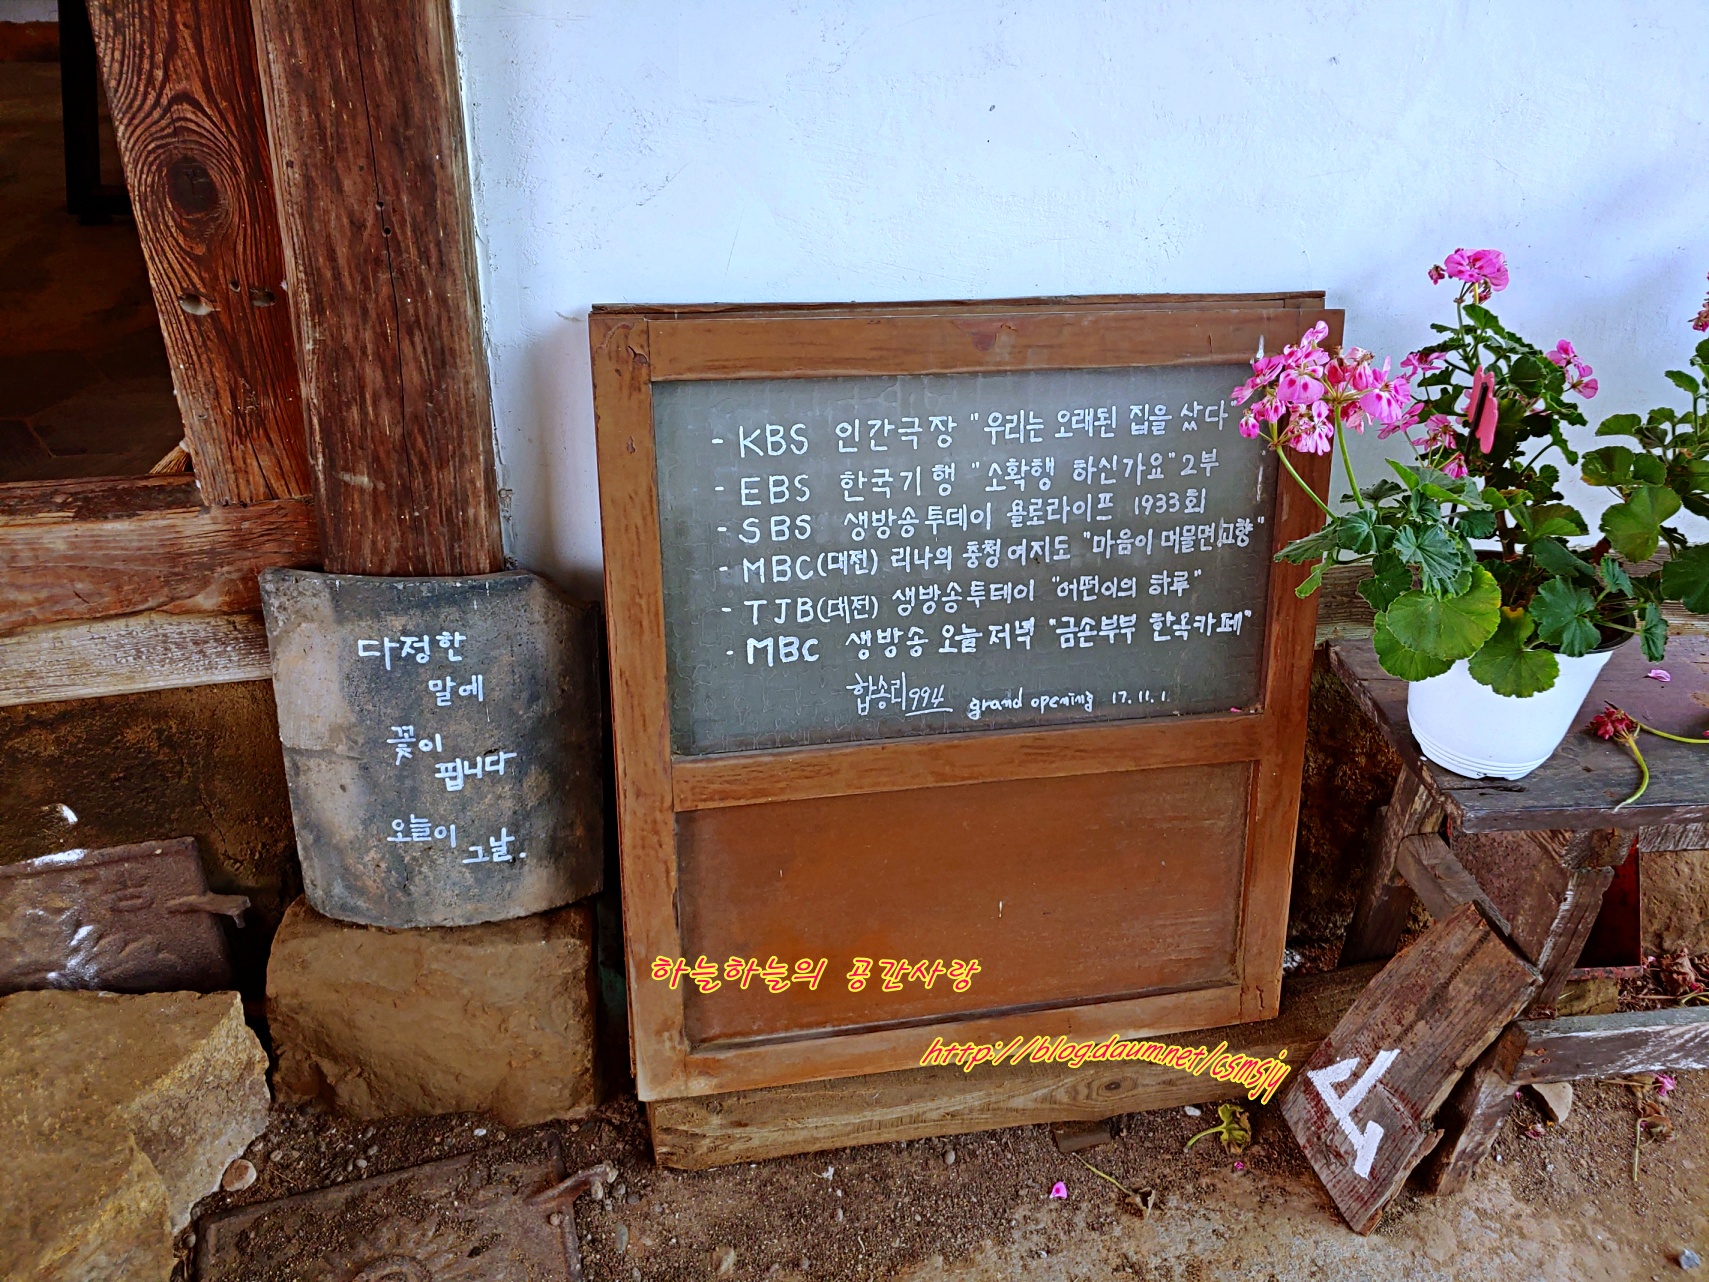 다정한
말에
꽃이
핍니다
오늘이
그날.
- KBS 인간극장 "우리는 오래된 집을 샀다"
- EBS 한국기행 "소확행 하신가요" 2부
- SBS 생방송투데이 욜로라이프 1933회
- MBC(대전) 리나의 충청여지도 "마음이 머물면,고향"
- TJB(대전) 생방송투데이 "어떤이의 하루"
- MBC 생방송 오늘저녁 "금손부부 한옥카페"
합송리994 grand opening 17.11.1.
하늘하늘의 공간사랑
http://blog.daum.net/csmsjy